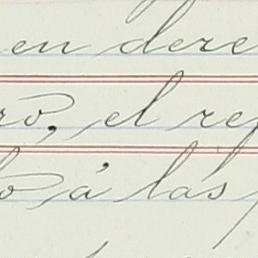 en dere
ro, el rep
o á las